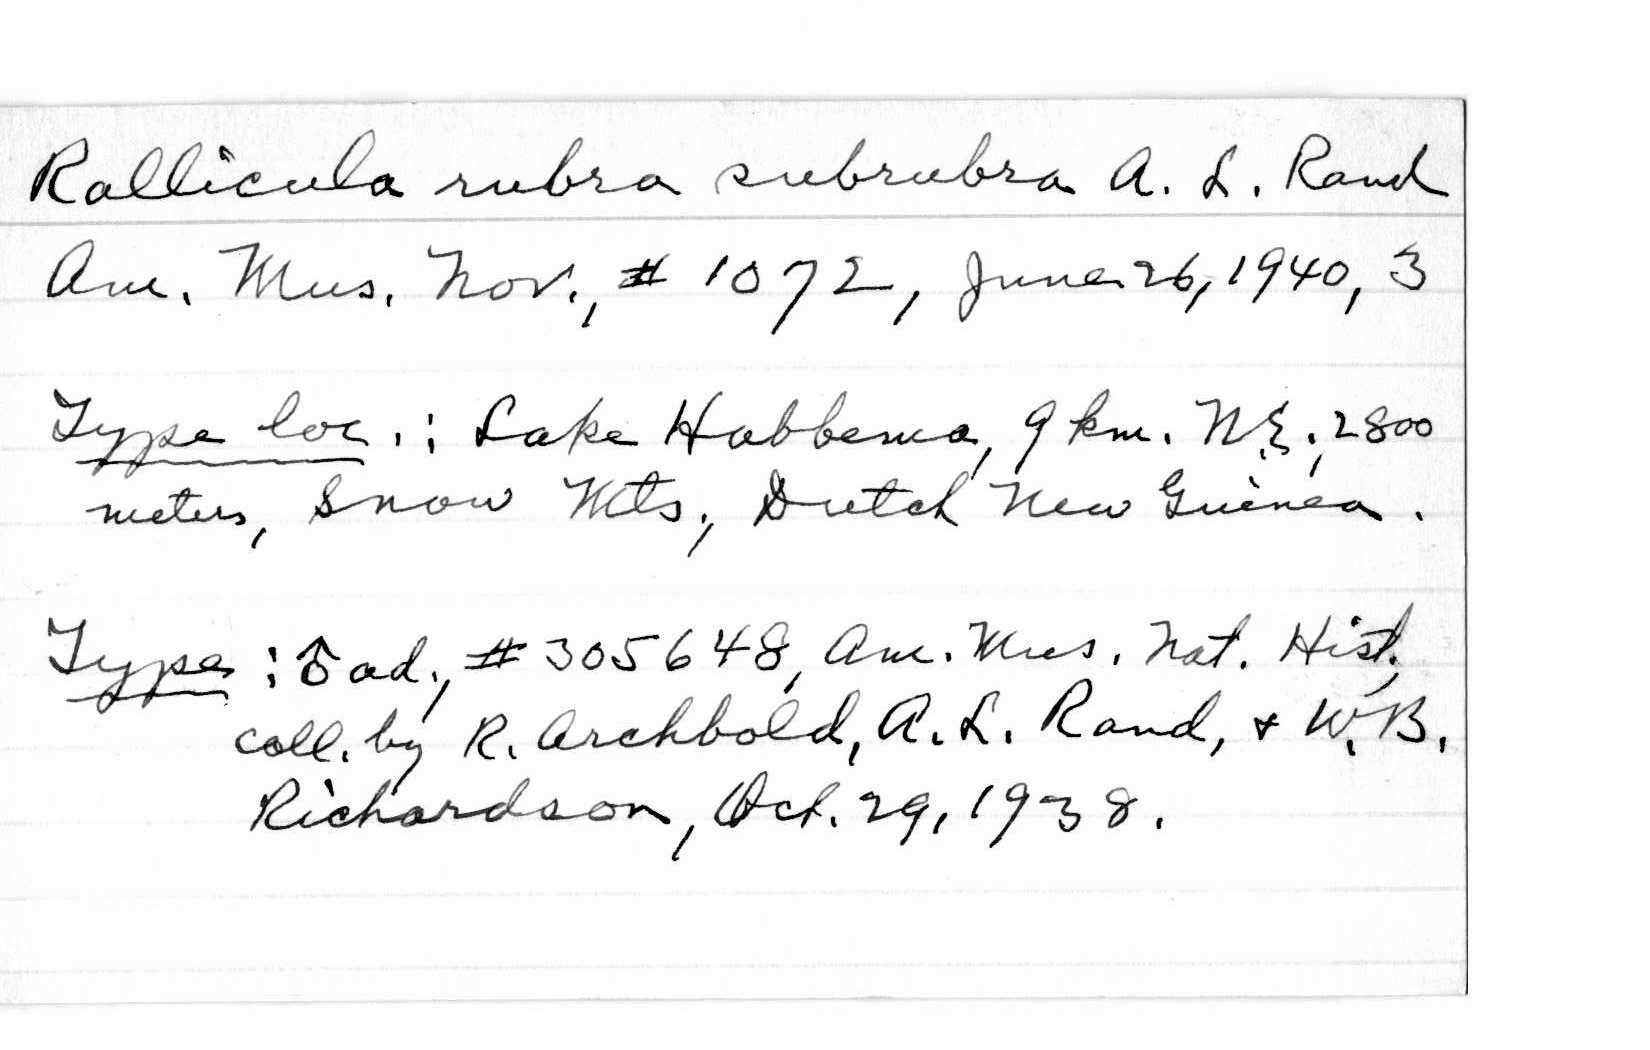 Rallicula rubra subrubra A. L. Rand
Am. Mus. Nov., # 1072, June 26, 1940, 3
Type loc.: Lake Habbema, 9 km. N.E., 2800
meters, Snow Mts., Dutch New Guinea.
Type: ♂ ad., # 305648, Am. Mus. Nat. Hist.,
coll. by R. Archbold, A. L. Rand, & W. B.
Richardson, Oct. 29, 1938.